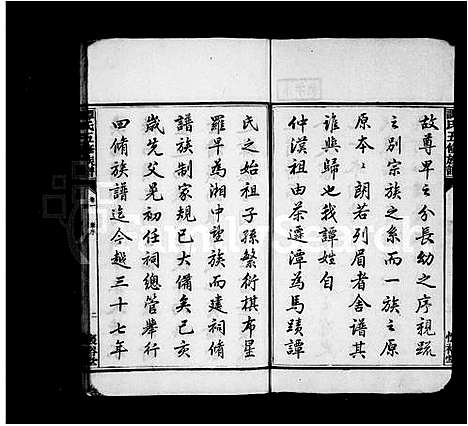 故尊卑之分長幼之序親疏
之別宗族之系而一族之原
原本本朗若列眉者舍譜其
誰與歸也我譚姓自
仲漠祖由茶遷潭為馬蹟譚
氏之始祖子孫繁衍棋布星
羅早為湘中望族而建祠脩
譜族制家規已大備矣己亥
歲先父晃初任祠總管舉行
四脩族譜迄今越三十七年
譚氏五脩族譜
卷一
二
FamilySearch